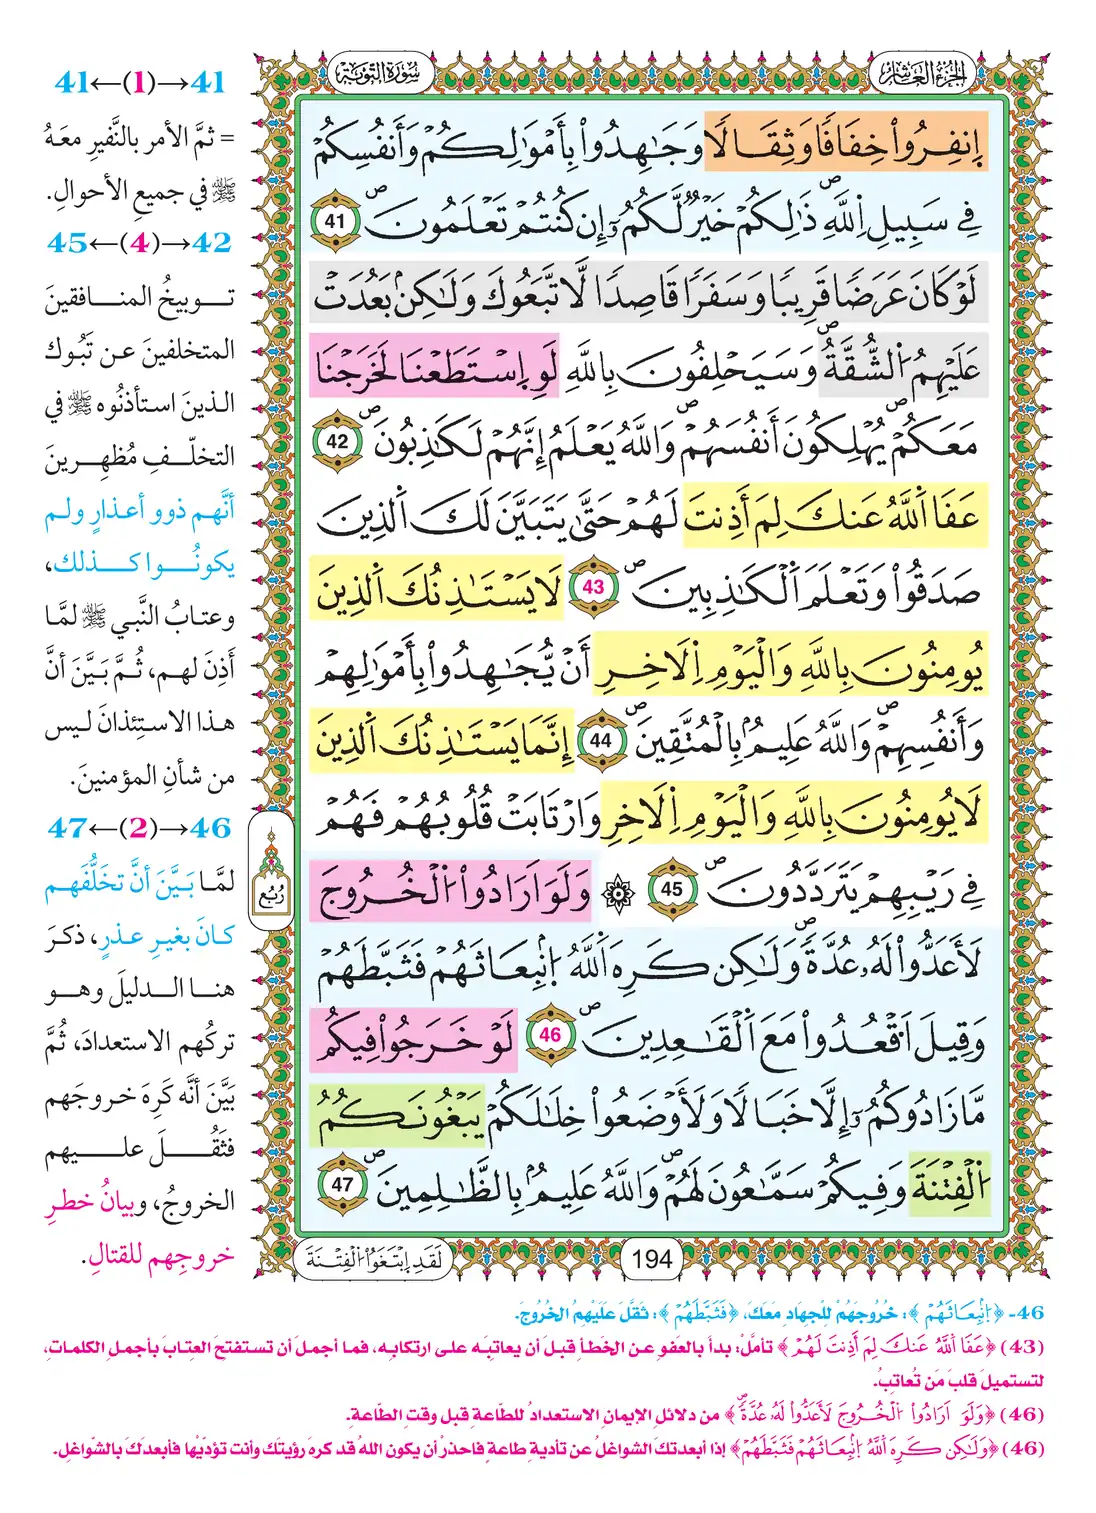 الجزء العاشر
سورة التوبة
إِنفِرُواْ خِفَافًا وَثِقَالًا وَجَٰهِدُواْ بِأَمْوَٰلِكُمْ وَأَنفُسِكُمْ
فِي سَبِيلِ اِللَّهِ ذَٰلِكُمْ خَيْرٌ لَّكُمُۥ إِن كُنتُمْ تَعْلَمُونَ 41
لَوْ كَانَ عَرَضًا قَرِيبًا وَسَفَرًا قَاصِدًا لَّاتَّبَعُوكَ وَلَٰكِنۢ بَعُدَتْ
عَلَيْهِمُ اُلشُّقَّةُ وَسَيَحْلِفُونَ بِاللَّهِ لَوِ اِسْتَطَعْنَا لَخَرَجْنَا
مَعَكُمْ يُهْلِكُونَ أَنفُسَهُمْ وَاللَّهُ يَعْلَمُ إِنَّهُمْ لَكَٰذِبُونَ 42
عَفَا اَللَّهُ عَنكَ لِمَ أَذِنتَ لَهُمْ حَتَّىٰ يَتَبَيَّنَ لَكَ اَلَّذِينَ
صَدَقُواْ وَتَعْلَمَ اَلْكَٰذِبِينَ 43 لَا يَسْتَٰذِنُكَ اَلَّذِينَ
يُومِنُونَ بِاللَّهِ وَالْيَوْمِ اِلَاخِرِ أَنْ يُّجَٰهِدُواْ بِأَمْوَٰلِهِمْ
وَأَنفُسِهِمْ وَاللَّهُ عَلِيمٌۢ بِالْمُتَّقِينَ 44 إِنَّمَا يَسْتَٰذِنُكَ اَلَّذِينَ
لَا يُومِنُونَ بِاللَّهِ وَالْيَوْمِ اِلَاخِرِ وَارْتَابَتْ قُلُوبُهُمْ فَهُمْ
فِي رَيْبِهِمْ يَتَرَدَّدُونَ 45 ۞ وَلَوَ اَرَادُواْ اُلْخُرُوجَ
لَأَعَدُّواْ لَهُۥ عُدَّةً وَلَٰكِن كَرِهَ اَللَّهُ اُنۢبِعَاثَهُمْ فَثَبَّطَهُمْ
وَقِيلَ اَقْعُدُواْ مَعَ اَلْقَٰعِدِينَ 46 لَوْ خَرَجُواْ فِيكُم
مَّا زَادُوكُمُۥ إِلَّا خَبَالًا وَلَأَوْضَعُواْ خِلَٰلَكُمْ يَبْغُونَكُمُ
اُلْفِتْنَةَ وَفِيكُمْ سَمَّٰعُونَ لَهُمْ وَاللَّهُ عَلِيمٌۢ بِالظَّٰلِمِينَ 47
رُبُع
194
لَقَدِ اِبْتَغَوُاْ اُلْفِتْنَةَ
41←(1)→41
= ثمَّ الأمر بالنَّفيرِ معَهُ
ﷺ في جميعِ الأحوالِ.
42→(4)←45
تــوبيخُ المنــافقينَ
المتخلفينَ عـن تَبُوك
الـذينَ استأذنُوه ﷺ في
التخلّــفِ مُظهِــرينَ
أنَّهـم ذوو أعـذارٍ ولـم
يكونُــوا كــذلك،
وعتـابُ النَّبـي ﷺ لمَّـا
أَذِنَ لهـم، ثُـمَّ بَيَّنَ أنَّ
هـذا الاستِئذانَ لـيس
من شأنِ المؤمنينَ.
46→(2)←47
لمَّـا بَـيَّنَ أنَّ تخَلُّفَهـم
كـانَ بغيـرِ عـذرٍ، ذكـرَ
هنــا الــدليلَ وهــو
تركُهم الاستعدادَ، ثُمَّ
بَيَّنَ أنَّه كَرِهَ خـروجَهم
فثَقُــلَ علــيهم
الخروجُ، وبيانُ خطـرِ
خروجِهم للقتالِ.
46- ﴿اُنۢبِعَاثَهُمْ﴾: خُرُوجَهُمْ لِلْجِهَادِ مَعَكَ، ﴿فَثَبَّطَهُمْ﴾: ثَقَّلَ عَلَيْهِمُ الخُرُوجَ.
(43) ﴿عَفَا اَللَّهُ عَنكَ لِمَ أَذِنتَ لَهُمْ﴾ تأمَّلْ: بدأَ بالعفوِ عـن الخَطـأِ قبـلَ أن يعاتبَـه علـى ارتكابِـه، فمـا أجمـلَ أن تستفتحَ العِتـابَ بأجمـلِ الكلمـاتِ،
لتستميلَ قلبَ مَن تُعاتِبُ.
(46) ﴿وَلَوَ اَرَادُواْ اُلْخُرُوجَ لَأَعَدُّواْ لَهُۥ عُدَّةً﴾ من دلائلِ الإيمانِ الاستعدادُ للطَّاعةِ قبل وقتِ الطَّاعة.
(46) ﴿وَلَٰكِن كَرِهَ اَللَّهُ اُنۢبِعَاثَهُمْ فَثَبَّطَهُمْ﴾ إذا أبعدتكَ الشواغلُ عن تأديةِ طاعةٍ فاحذرْ أن يكون اللهُ قد كرهَ رؤيتَكَ وأنت تؤدّيْها فأبعدكَ بالشّواغلِ.